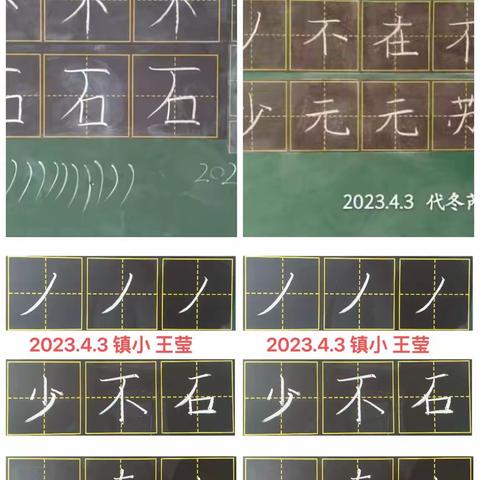 不 不
石 石 石
202
不 在 不
少 元 元 苏
2023.4.3 代冬芮
丿 丿 丿
2023.4.3 镇小 王莹
少 不 石
丿 丿 丿
2023.4.3 镇小 王莹
少 不 石